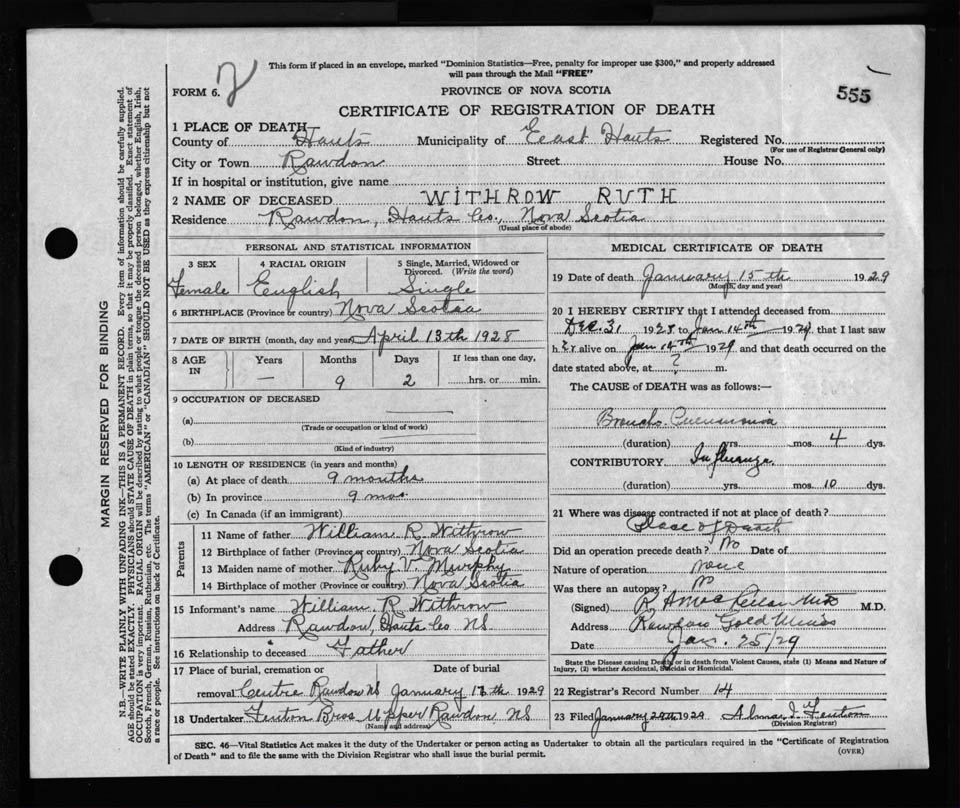 This form if placed in an envelope, marked "Dominion Statistics—Free, penalty for improper use $300," and properly addressed
will pass through the Mail "FREE"
FORM 6.
2
PROVINCE OF NOVA SCOTIA
555
CERTIFICATE OF REGISTRATION OF DEATH
1 PLACE OF DEATH
County of Hants Municipality of East Hants Registered No.
(For use of Registrar General only)
City or Town Rawdon Street House No.
If in hospital or institution, give name
2 NAME OF DECEASED WITHROW RUTH
Residence Rawdon, Hants Co., Nova Scotia
(Usual place of abode)
PERSONAL AND STATISTICAL INFORMATION
3 SEX 4 RACIAL ORIGIN 5 Single, Married, Widowed or
Divorced. (Write the word)
Female English Single
6 BIRTHPLACE (Province or country) Nova Scotia
7 DATE OF BIRTH (month, day and year) April 13th 1928
8 AGE Years Months Days If less than one day,
IN — 9 2 hrs. or min.
9 OCCUPATION OF DECEASED
(a)
(Trade or occupation or kind of work)
(b)
(Kind of industry)
10 LENGTH OF RESIDENCE (in years and months)
(a) At place of death 9 months
(b) In province 9 mos
(c) In Canada (if an immigrant)
Parents
11 Name of father William R. Withrow
12 Birthplace of father (Province or country) Nova Scotia
13 Maiden name of mother Ruby V. Murphy
14 Birthplace of mother (Province or country) Nova Scotia
15 Informant's name William R Withrow
Address Rawdon, Hants Co NS.
16 Relationship to deceased Father
17 Place of burial, cremation or Date of burial
removal Centre Rawdon NS January 17th 1929
18 Undertaker Fenton Bros Upper Rawdon NS
(Name and address)
MEDICAL CERTIFICATE OF DEATH
19 Date of death January 15th 1929
(Month, day and year)
20 I HEREBY CERTIFY that I attended deceased from
Dec. 31 1928 to Jan 14th 1929, that I last saw
h er alive on Jan 14th 1929 and that death occurred on the
date stated above, at ? m.
The CAUSE of DEATH was as follows:—
Broncho Pneumonia
(duration) yrs. mos. 4 dys.
CONTRIBUTORY Influenza
(duration) yrs. mos. 10 dys.
21 Where was disease contracted if not at place of death?
Place of Death
Did an operation precede death? No Date of
Nature of operation None
Was there an autopsy? No
(Signed) M.D.
Address Rawdon Gold Mines
Date Jan. 25/29
State the Disease causing Death, or in death from Violent Causes, state (1) Means and Nature of
Injury, (2) whether Accidental, Suicidal or Homicidal.
22 Registrar's Record Number 14
23 Filed January 1929 Fenton
(Division Registrar)
SEC. 46—Vital Statistics Act makes it the duty of the Undertaker or person acting as Undertaker to obtain all the particulars required in the "Certificate of Registration
of Death" and to file the same with the Division Registrar who shall issue the burial permit.
(OVER)
MARGIN RESERVED FOR BINDING
N.B.—WRITE PLAINLY WITH UNFADING INK—THIS IS A PERMANENT RECORD. Every item of information should be carefully supplied.
AGE should be stated EXACTLY. PHYSICIANS should STATE CAUSE OF DEATH in plain terms, so that it may be properly classified. Exact statement of
OCCUPATION is very important. RACIAL ORIGIN will be described by stating to what people or tongue the deceased person belonged, whether English, Irish,
Scotch, French, German, Russian, Ruthenian, etc. The terms "AMERICAN" or "CANADIAN" SHOULD NOT BE USED as they express citizenship but not
a race or people. See instructions on back of Certificate.